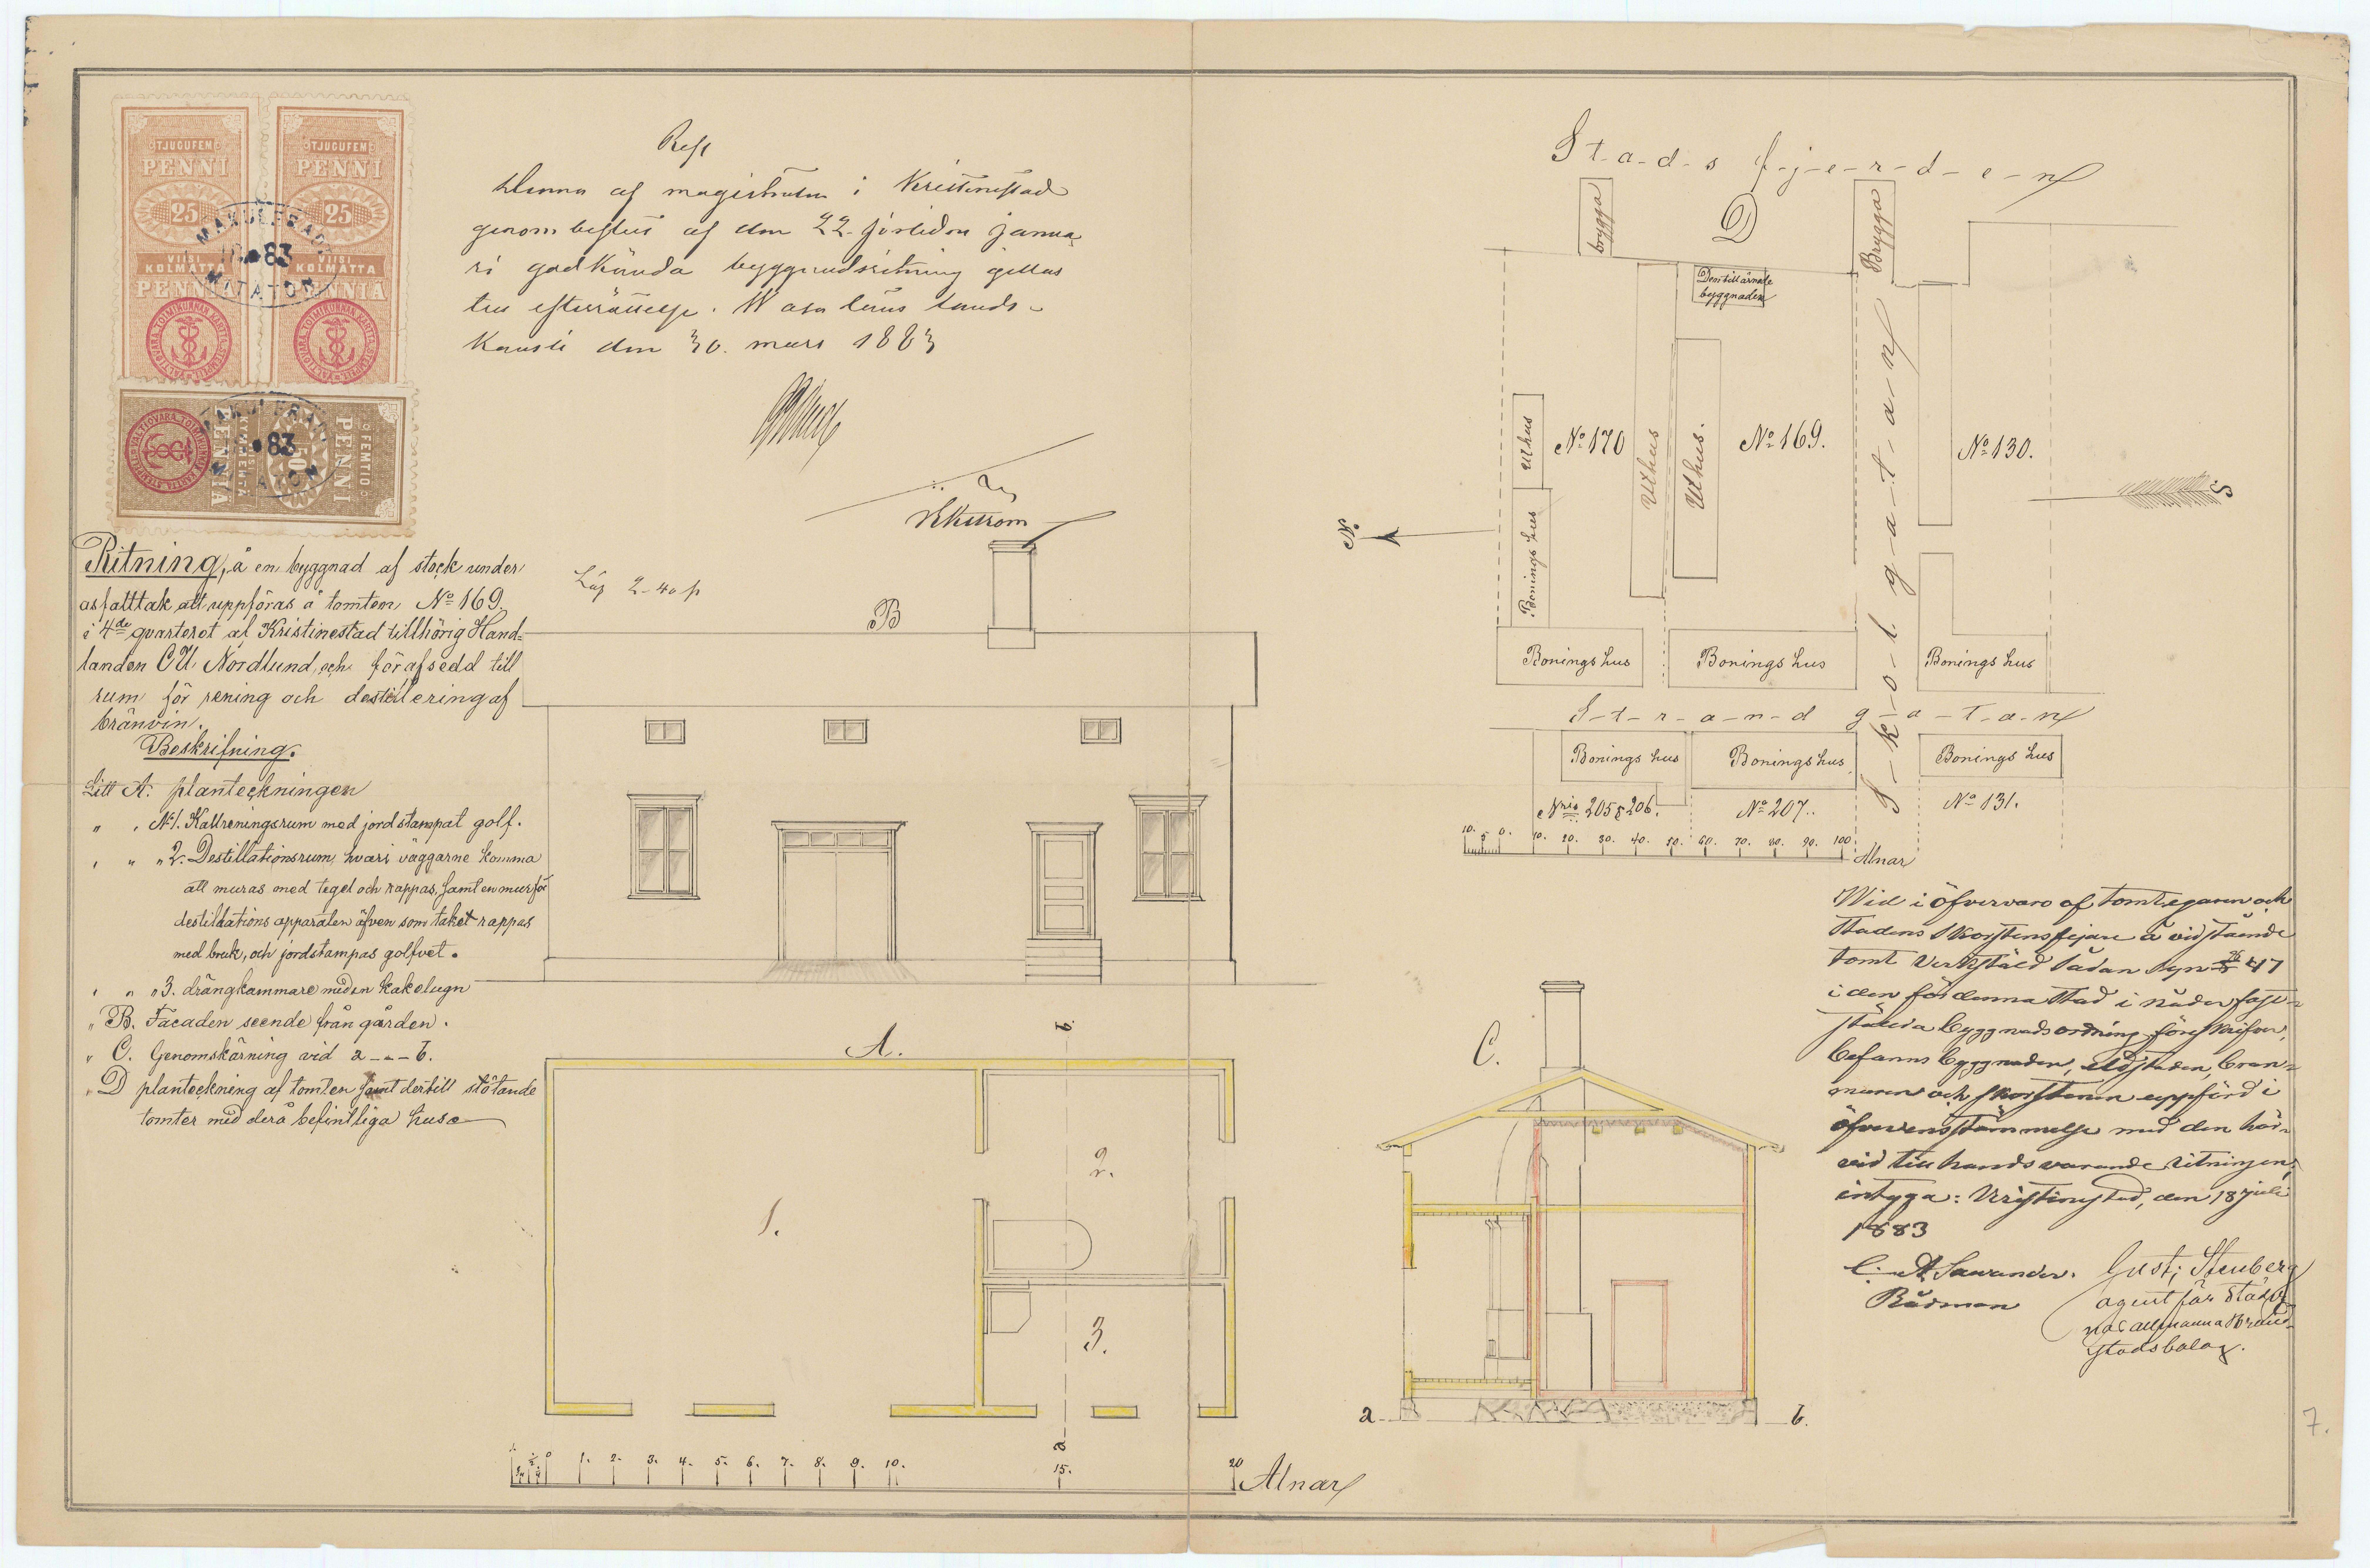 TJUGUFEM
PENNI
25
VIISI
KOLMATTA
PENNIÄ
TJUGUFEM
PENNI
25
VIISI
KOLMATTA
PENNIÄ
MAKULERAD
83
MITÄTÖN
FEMTIO
PENNI
50
PENNIÄ
83
Resl
Denna af magistraten i Kristinestad
genom beslut af den 22 sistliden janua
ri godkända byggnadsritning gillas
till efterrättelse. Wasa läns lands-
kansli den 30. mars 1883
Ekström
Lös 2-40 p
Ritning, å en byggnad af stock under
asfalttak att uppföras å tomten No 169.
i 4de qvarteret af Kristinestad tillhörig Hand=
landen C U. Nordlund, och för afsedd till
rum för rening och destilering af
bränvin.
Beskrifning.
Litt A. planteckningen
" , No 1. Kallreningsrum med jordstampat golf.
, " " 2. Destillationsrum, hvars väggarne komma
att muras med tegel och rappas, samt en mur för
destillations apparaten äfven som taket rappas
med bruk, och jordstampas golfvet.
, " " 3. drängkammare med en kakelugn
" B. Facaden seende från gården.
" C. Genomskärning vid a-"-b.
" D planteckning af tomten samt dertill stötande
tomter med derå befintliga huse
B
A.
b
1.
2.
3.
a
1. 0 1. 2. 3. 4. 5. 6. 7. 8. 9. 10. 15. 20 Alnar
C.
a
b.
Stadsfjerden
D
brygga
Brygga
Den till ärnade
byggnaden
Uthus
No 170
Uthus
Uthus.
No 169.
No 130.
Skolgatan
N.
S
Boningshus
Boningshus
Boningshus
Boningshus
Strandgatan
Boningshus
Boningshus
Boningshus
Nris 205 & 206.
No 207.
No 131.
10. 5 0. 10. 20. 30. 40. 50. 60. 70. 80. 90. 100 Alnar
Wid i öfvervaro af tomtegaren och
Stadens Skorstensfejare å vidstående
tomt verkstäld sådan syn 47
i den för denna stad i nåder fast-
stälda byggnadsordning föreskrifver,
befanns byggnaden, eldstaden, bran-
muren och skorstenen uppförd i
öfverensstämmelse med den här-
vid till hands varande ritningen,
intyga: Kristinestad, den 18 juli
1883
Rådman
Gust; Stenberg
agent för Städer
nas allmänna Brand-
stodsbolag.
7.